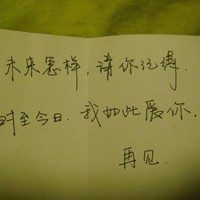 未来怎样，请你记得.
时至今日.我如此爱你.
再见.